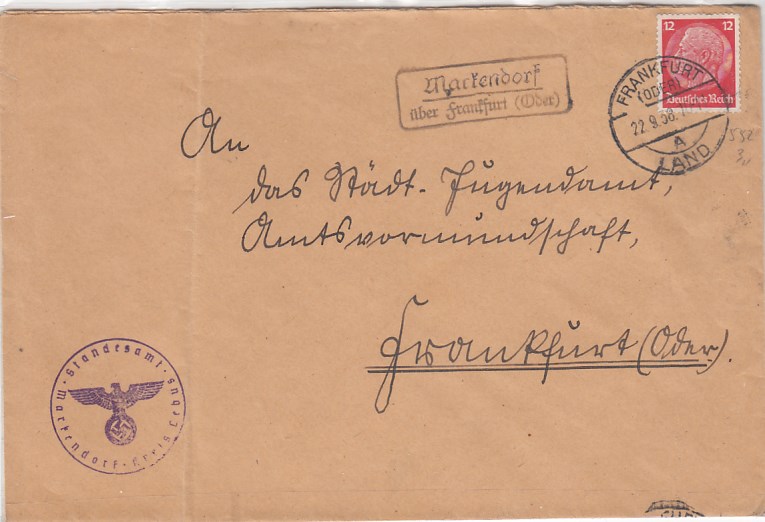 12 12
Deutsches Reich
Markendorf
über Frankfurt (Oder)
FRANKFURT
(ODER)
22.9.38.
A
LAND
552
An
das Städt. Jugendamt,
Amtsvormundschaft,
Frankfurt (Oder).
Standesamt
Markendorf - Kreis Lebus